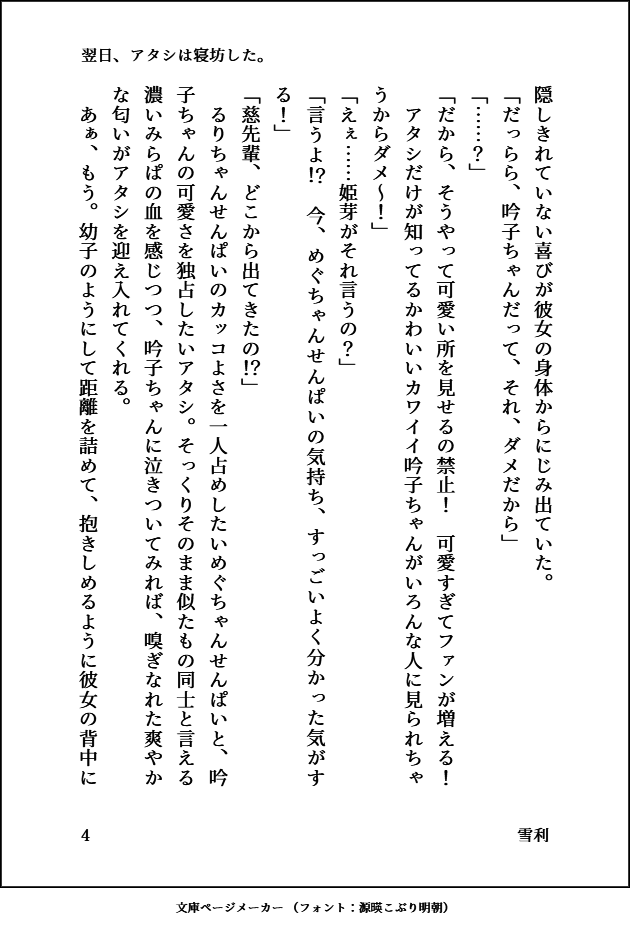 翌日、アタシは寝坊した。
隠しきれていない喜びが彼女の身体からにじみ出ていた。
「だっらら、吟子ちゃんだって、それ、ダメだから」
「……？」
「だから、そうやって可愛い所を見せるの禁止！　可愛すぎてファンが増える！
　アタシだけが知ってるかわいいカワイイ吟子ちゃんがいろんな人に見られちゃ
うからダメ～！」
「えぇ……姫芽がそれ言うの？」
「言うよ!?　今、めぐちゃんせんぱいの気持ち、すっごいよく分かった気がす
る！」
「慈先輩、どこから出てきたの!?」
　るりちゃんせんぱいのカッコよさを一人占めしたいめぐちゃんせんぱいと、吟
子ちゃんの可愛さを独占したいアタシ。そっくりそのまま似たもの同士と言える
濃いみらぱの血を感じつつ、吟子ちゃんに泣きついてみれば、嗅ぎなれた爽やか
な匂いがアタシを迎え入れてくれる。
　あぁ、もう。幼子のようにして距離を詰めて、抱きしめるように彼女の背中に
雪利
4
文庫ページメーカー（フォント：源暎こぶり明朝）